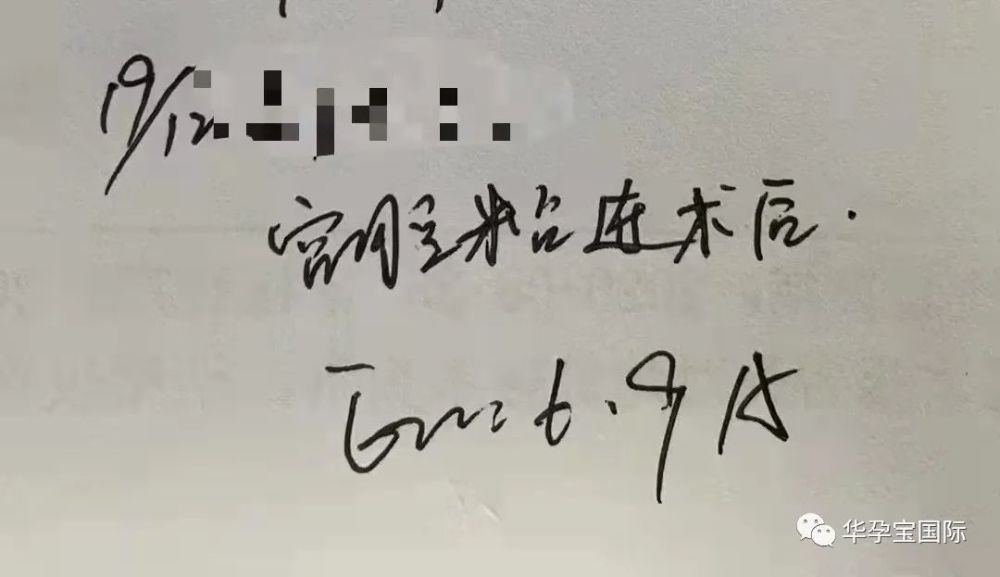 19/12
宫腔粘连术后.
Em: 6.9 A
华孕宝国际